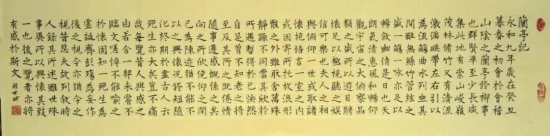 蘭亭記
永和九年歲在癸丑
暮春之初會於會稽
山陰之蘭亭修禊事
也群賢畢至少長咸
集此地有崇山峻嶺
茂林修竹又有清流
激湍映帶左右引以
為流觴曲水列坐其
次雖無絲竹管絃之
盛一觴一詠亦足以
暢敘幽情是日也天
朗氣清惠風和暢仰
觀宇宙之大俯察品
類之盛所以遊目騁
懷足以極視聽之娛
信可樂也夫人之相
與俯仰一世或取諸
懷抱悟言一室之內
或因寄所託放浪形
骸之外雖取舍萬殊
靜躁不同當其欣於
所遇暫得於己快然
自足不知老之將至
及其所之既倦情
隨事遷感慨係之矣
向之所欣俛仰之間
已為陳迹猶不能不
以之興懷況修短隨
化終期於盡古人云
死生亦大矣豈不痛
哉每覽昔人興感之
由若合一契未嘗不
臨文嗟悼不能喻之
於懷固知一死生為
虛誕齊彭殤為妄作
後之視今亦猶今之
視昔悲夫故列敘時
人錄其所述雖世殊
事異所以興懷其致
一也後之覽者亦將
有感於斯文